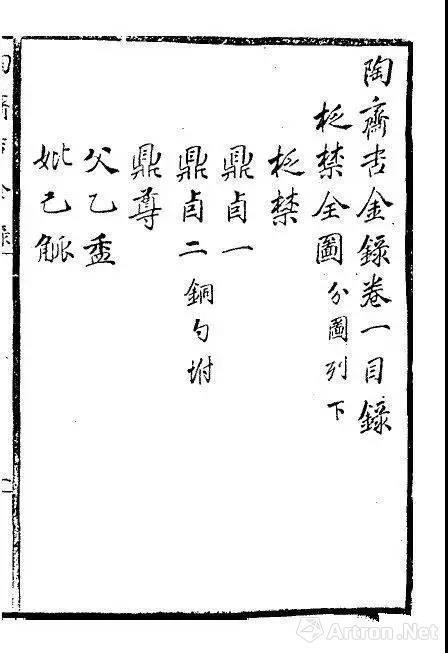 陶齋吉金錄卷一目錄
柉禁全圖 分圖列下
柉禁
鼎卣一
鼎卣二 銅勺坿
鼎尊
父乙盉
妣己觚
陶齋吉金錄
Artron.Net